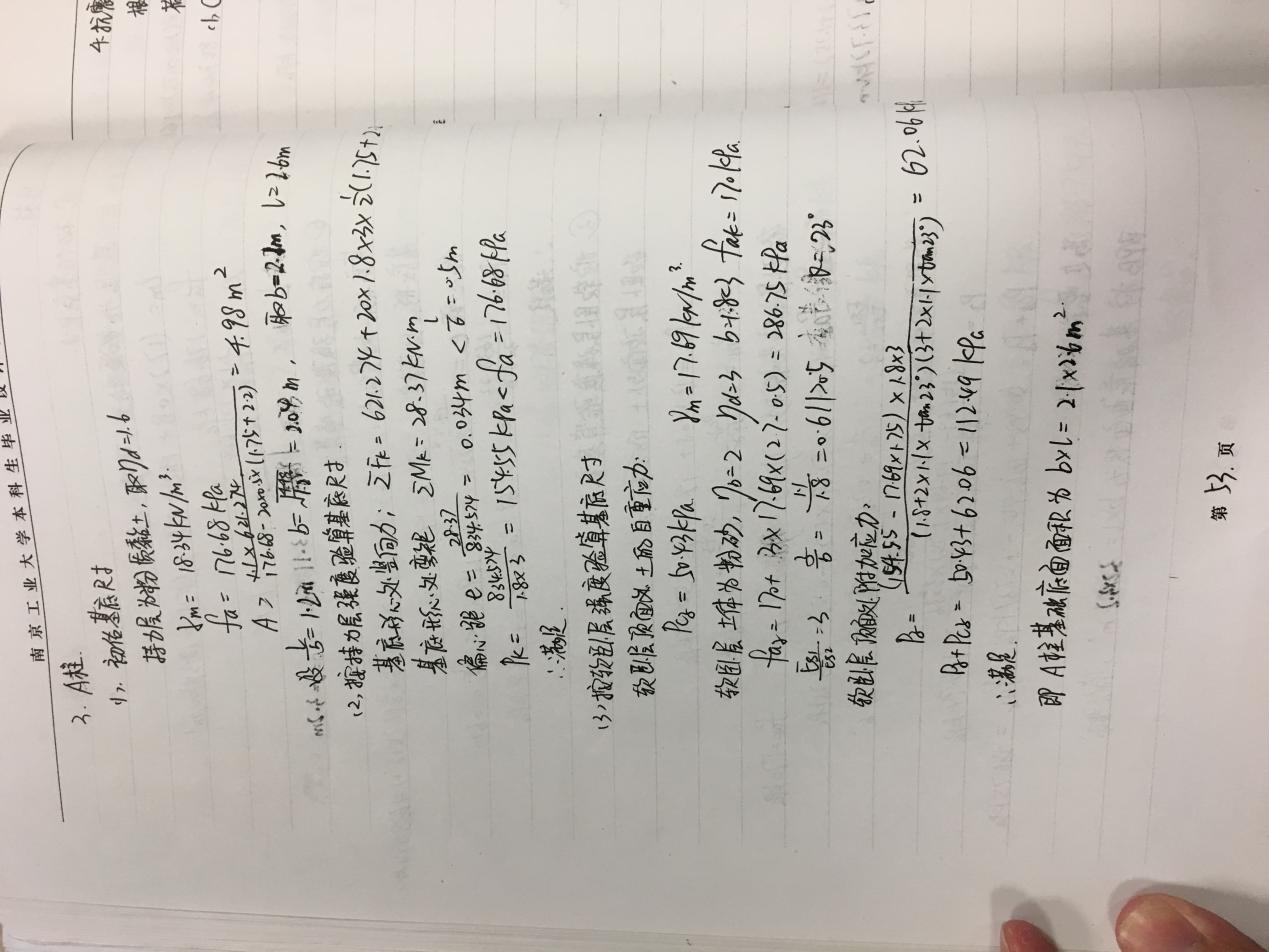 南京工业大学本科生毕业设
3. A柱.
(1). 初估基底尺寸
持力层为粉质黏土, 取ηd=1.6
γm = 18.34kN/m³.
fa = 176.68 kPa
A > 1.1×621.274 / 176.68-20×0.5×(1.75+2.2) = 4.98m²
设 l/b = 1.2 b= = 2.04 m, 取b=2.1m, l=2.6m
(2), 按持力层强度验算基底尺寸.
基底形心处竖向力: ΣFk = 621.274+20×1.8×3×½(1.75+2.
基底形心处弯矩 ΣMk = 28.37kN·m
偏心距 e = 28.37/834.574 = 0.034m < l/6 = 0.5m
Pk = 834.574/1.8×3 = 154.55 kPa < fa = 176.68 kPa
∴满足.
(3), 按软卧层强度验算基底尺寸
软卧层顶面处土的自重应力:
Pcz = 50.43kPa. γm = 17.69kN/m³.
软卧层土体为粉砂, ηb=2 ηd=3 b=1.8<3 fak = 170kPa.
faz = 170+ 3×17.69×(2.7-0.5) = 286.75 kPa
Es1/Es2 = 3 z/b = 1.1/1.8 = 0.611>0.5 θ=23°
软卧层顶面处附加应力:
Pz = (154.55 - 17.69×1.75)×1.8×3 / (1.8+2×1.1×tan23°)(3+2×1.1×tan23°) = 62.06k
Pz+Pcz = 50.43+62.06 = 112.49 kPa
∴满足.
即A柱基础底面面积为 b×l = 2.1×2.6m²
第 53. 页
4.抗震